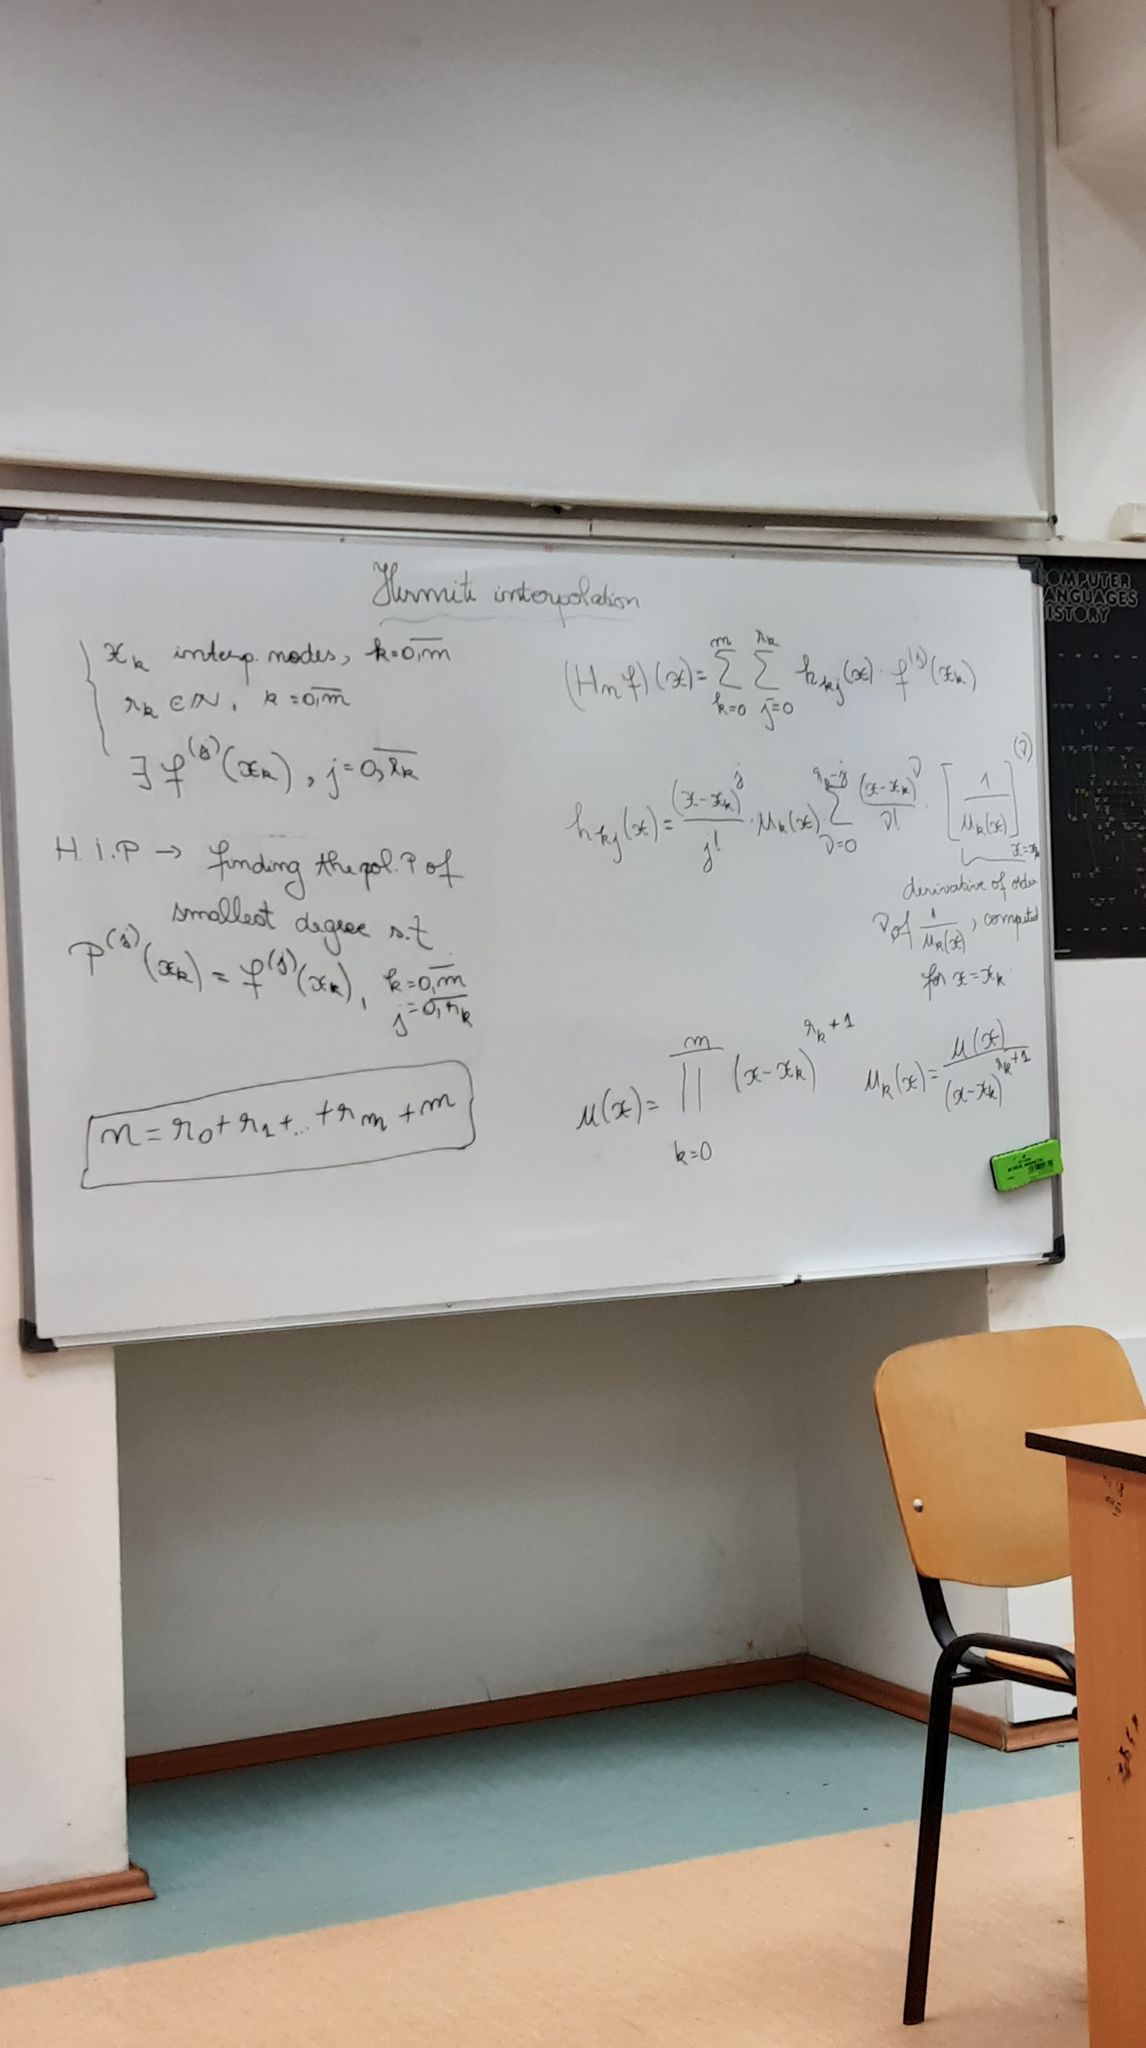 Hermite interpolation
x_k interp. nodes, k=\overline{0,m}
r_k ∈ N, k=\overline{0,m}
∃ f^{(j)}(x_k), j=\overline{0,r_k}
H.I.P → finding the pol. P of
smallest degree s.t
P^{(j)}(x_k) = f^{(j)}(x_k), k=\overline{0,m}
j=\overline{0,r_k}
n = r_0 + r_1 + ... + r_m + m
(H_n f)(x) = \sum_{k=0}^{m} \sum_{j=0}^{r_k} h_{kj}(x) · f^{(j)}(x_k)
h_{kj}(x) = \frac{(x-x_k)^j}{j!} · u_k(x) · \sum_{ν=0}^{r_k-j} \frac{(x-x_k)^ν}{ν!} · [\frac{1}{u_k(x)}]^{(ν)}_{x=x_k}
derivative of order
ν of \frac{1}{u_k(x)}, computed
for x = x_k
u(x) = \prod_{k=0}^{m} (x-x_k)^{r_k+1} u_k(x) = \frac{u(x)}{(x-x_k)^{r_k+1}}
COMPUTER
LANGUAGES
HISTORY